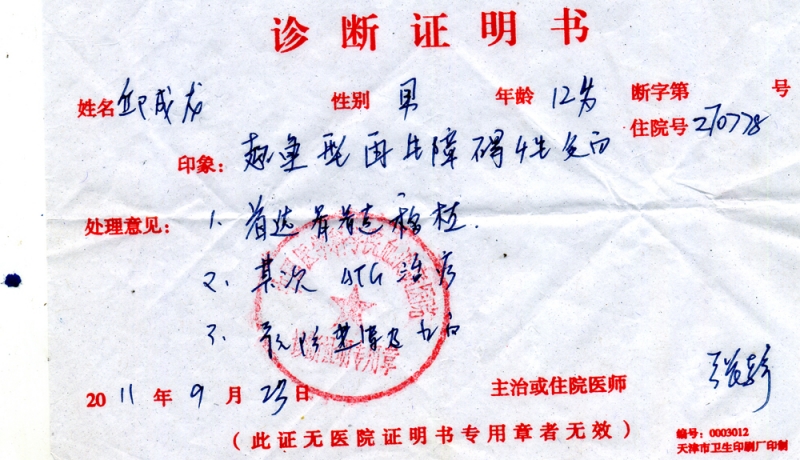 诊断证明书
姓名 邱成龙 性别 男 年龄 12岁 断字第 号
住院号 270778
印象: 超重型再生障碍性贫血
处理意见: 1、首选骨髓移植.
2、其次 ATG 治疗
3、预防感染及出血
诊断证明专用章
2011年9月23日 主治或住院医师
(此证无医院证明书专用章者无效)
编号:0003012
天津市卫生印刷厂印制